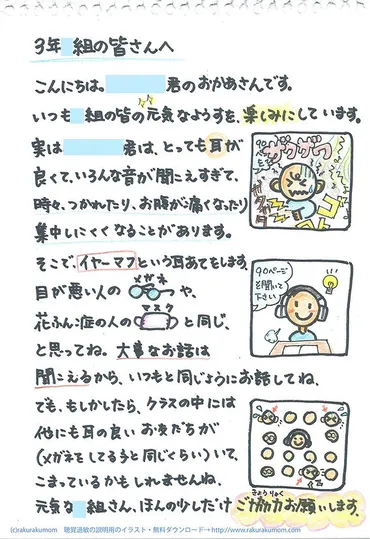 3年 組の皆さんへ
こんにちは。 君のおかあさんです。
いつも 組の皆の元気なようすを、楽しみにしています。
実は 君は、とっても耳が
良くて、いろんな音が聞こえすぎて、
時々、つかれたり、お腹が痛くなったり
集中しにくくなることがあります。
そこで、イヤーマフという耳あてをします。
目が悪い人のメガネや、
花ふん症の人のマスクと同じ、
と思ってね。大事なお話は
聞こえるから、いつもと同じようにお話してね、
でも、もしかしたら、クラスの中には
他にも耳の良いお友だちが
(メガネをしてる子と同じくらい)いて、
こまっているかもしれませんね。
元気な 組さん、ほんの少しだけ
きょうりょく
ご協力お願いします。
ザワザワ
90ページを開いて下さい
(c)rakurakumom 聴覚過敏の説明用のイラスト・無料ダウンロード→http://www.rakurakumom.com